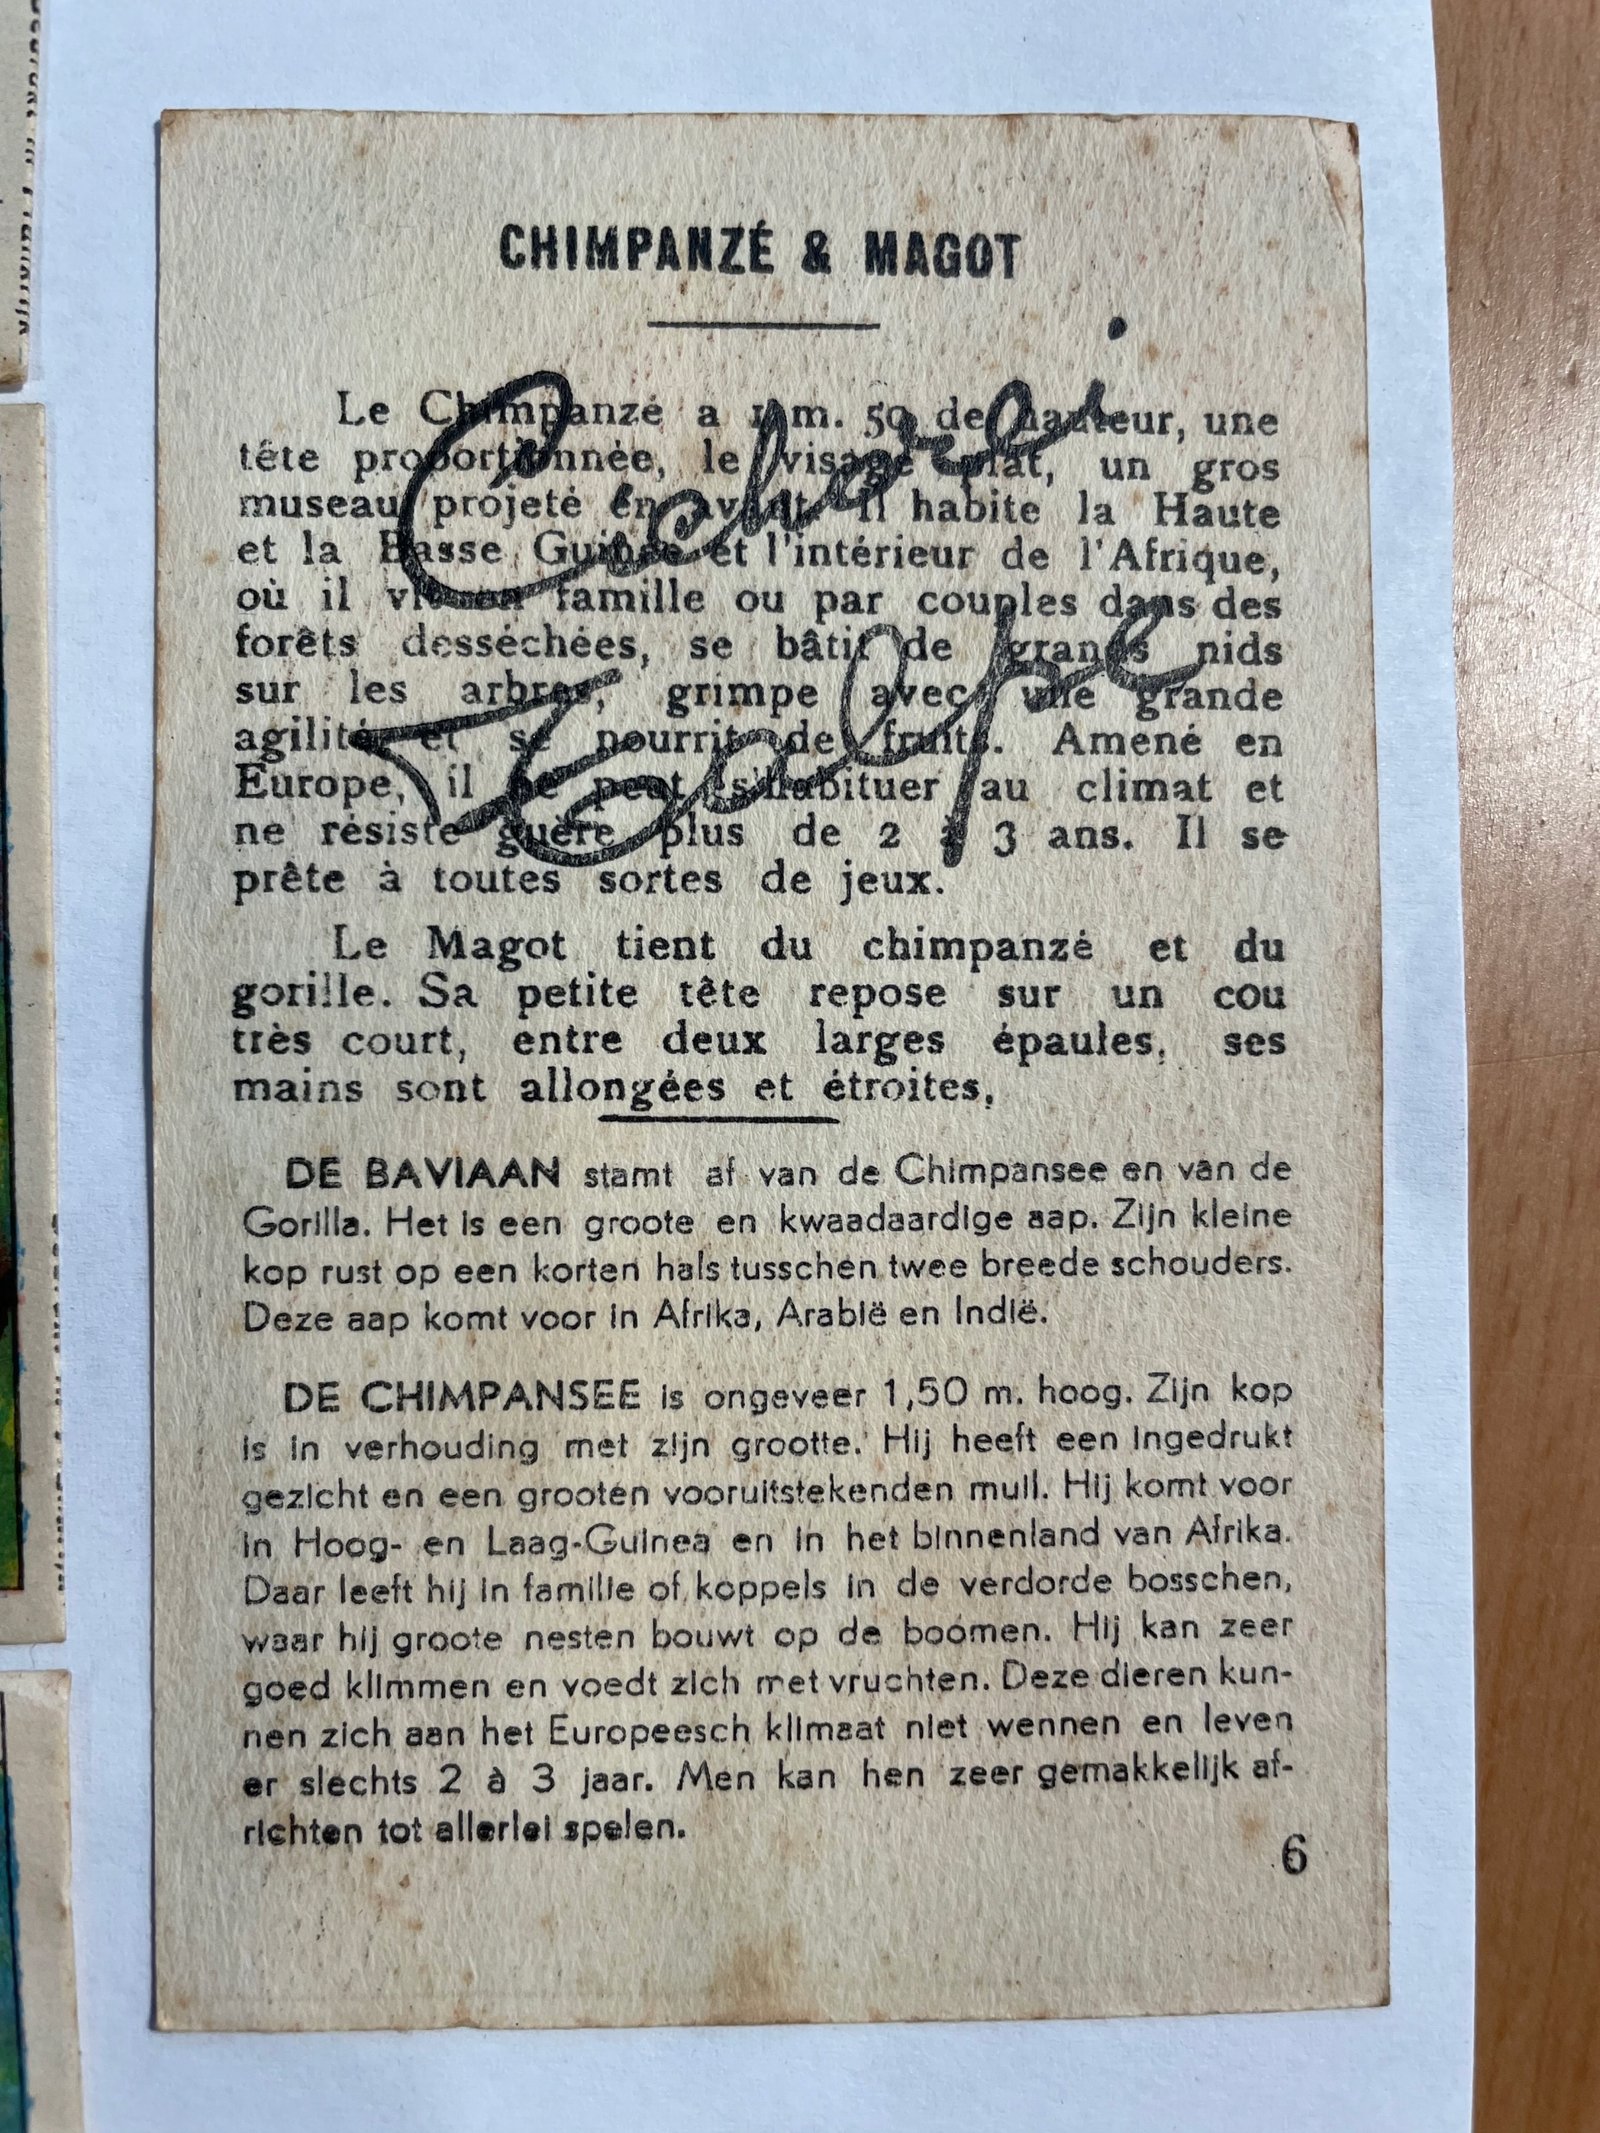 CHIMPANZÉ & MAGOT
Le Chimpanzé a 1 m. 50 de hauteur, une
tête proportionnée, le visage plat, un gros
museau projeté en avant. Il habite la Haute
et la Basse Guinée et l'intérieur de l'Afrique,
où il vit en famille ou par couples dans des
forêts desséchées, se bâtit de grands nids
sur les arbres, grimpe avec une grande
agilité et se nourrit de fruits. Amené en
Europe, il ne peut s'habituer au climat et
ne résiste guère plus de 2 à 3 ans. Il se
prête à toutes sortes de jeux.
Le Magot tient du chimpanzé et du
gorille. Sa petite tête repose sur un cou
très court, entre deux larges épaules, ses
mains sont allongées et étroites,
DE BAVIAAN stamt af van de Chimpansee en van de
Gorilla. Het is een groote en kwaadaardige aap. Zijn kleine
kop rust op een korten hals tusschen twee breede schouders.
Deze aap komt voor in Afrika, Arabië en Indië.
DE CHIMPANSEE is ongeveer 1,50 m. hoog. Zijn kop
is in verhouding met zijn grootte. Hij heeft een ingedrukt
gezicht en een grooten vooruitstekenden muil. Hij komt voor
in Hoog- en Laag-Guinea en in het binnenland van Afrika.
Daar leeft hij in familie of koppels in de verdorde bosschen,
waar hij groote nesten bouwt op de boomen. Hij kan zeer
goed klimmen en voedt zich met vruchten. Deze dieren kun-
nen zich aan het Europeesch klimaat niet wennen en leven
er slechts 2 à 3 jaar. Men kan hen zeer gemakkelijk af-
richten tot allerlei spelen.
6